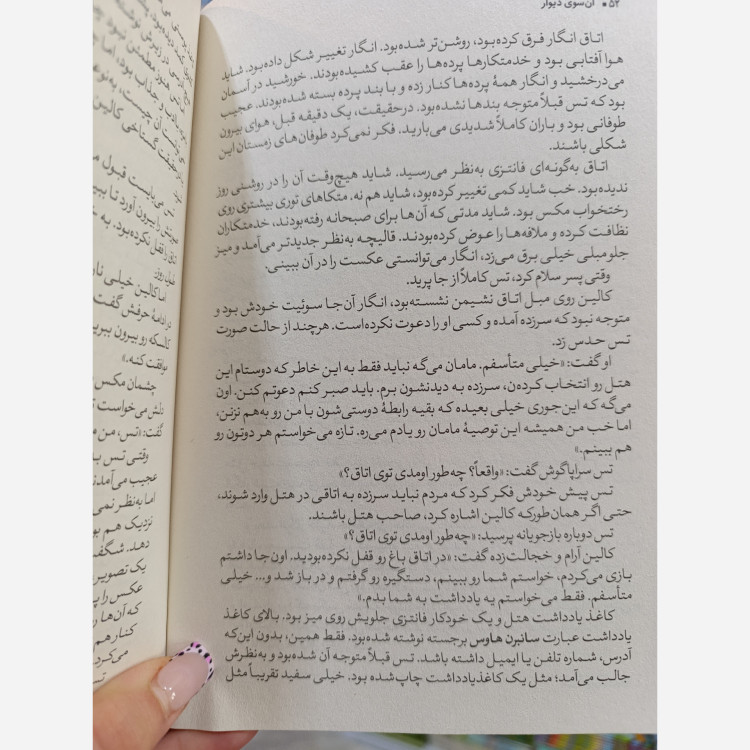 ۵۲ ■ آن‌سوی دیوار
اتاق انگار فرق کرده‌بود، روشن‌تر شده‌بود. انگار تغییر شکل داده‌بود. شاید
هوا آفتابی بود و خدمتکارها پرده‌ها را عقب کشیده‌بودند. خورشید در آسمان
می‌درخشید و انگار همهٔ پرده‌ها کنار زده و با بند پرده بسته شده‌بودند. عجیب
بود که تس قبلاً متوجه بندها نشده‌بود. درحقیقت، یک دقیقه قبل، هوای بیرون
طوفانی بود و باران کاملاً شدیدی می‌بارید. فکر نمی‌کرد طوفان‌های زمستان این
شکلی باشند.
اتاق به‌گونه‌ای فانتزی به‌نظر می‌رسید. شاید هیچ‌وقت آن را در روشنی روز
ندیده‌بود. خب شاید کمی تغییر کرده‌بود، شاید هم نه. متکاهای توری بیشتری روی
رختخواب مکس بود. شاید مدتی که آن‌ها برای صبحانه رفته‌بودند، خدمتکاران
نظافت کرده و ملافه‌ها را عوض کرده‌بودند. قالیچه به‌نظر جدیدتر می‌آمد و میز
جلومبلی خیلی برق می‌زد، انگار می‌توانستی عکست را در آن ببینی.
وقتی پسر سلام کرد، تس کاملاً از جا پرید.
کالین روی مبل اتاق نشیمن نشسته‌بود، انگار آن‌جا سوئیت خودش بود و
متوجه نبود که سرزده آمده و کسی او را دعوت نکرده‌است. هرچند از حالت صورت
تس حدس زد.
او گفت: «خیلی متأسفم. مامان می‌گه نباید فقط به این خاطر که دوستام این
هتل رو انتخاب کرده‌ن، سرزده به دیدنشون برم. باید صبر کنم دعوتم کنن. اون
می‌گه که این‌جوری خیلی بعیده که بقیه رابطهٔ دوستی‌شون با من رو به‌هم نزنن،
اما خب من همیشه این توصیهٔ مامان رو یادم می‌ره. تازه می‌خواستم هر دوتون رو
هم ببینم.»
تس سراپاگوش گفت: «واقعاً؟ چه‌طور اومدی توی اتاق؟»
تس پیش خودش فکر کرد که مردم نباید سرزده به اتاقی در هتل وارد شوند،
حتی اگر همان‌طورکه کالین اشاره کرد، صاحب هتل باشند.
تس دوباره بازجویانه پرسید: «چه‌طور اومدی توی اتاق؟»
کالین آرام و خجالت‌زده گفت: «در اتاق باغ رو قفل نکرده‌بودید. اون‌جا داشتم
بازی می‌کردم، خواستم شما رو ببینم، دستگیره رو گرفتم و در باز شد و... خیلی
متأسفم. فقط می‌خواستم یه یادداشت به شما بدم.»
کاغذ یادداشت هتل و یک خودکار فانتزی جلویش روی میز بود. بالای کاغذ
یادداشت عبارت سانبرن هاوس برجسته نوشته شده‌بود. فقط همین، بدون این‌که
آدرس، شماره تلفن یا ایمیل داشته باشد. تس قبلاً متوجه آن شده‌بود و به‌نظرش
جالب می‌آمد؛ مثل یک کاغذیادداشت چاپ‌شده بود. خیلی سفید تقریباً مثل
تس می‌بایست قبول م
اتاق را قفل نکرده‌بود. به
اما کالین خیلی نار
در ادامهٔ حرفش گفت
کالسکه رو بیرون ببر
موافقت کنه.»
چشمان مکس
دلش می‌خواست
گفت: «تس، من م
وقتی تس ب
عجیب می‌آمدن
اما به‌نظر نمی
نزدیک هم بو
دهد. شگفت
یک تصویر
عکس را پ
که آن‌ها ر
کنار هم
می‌کرد
تس